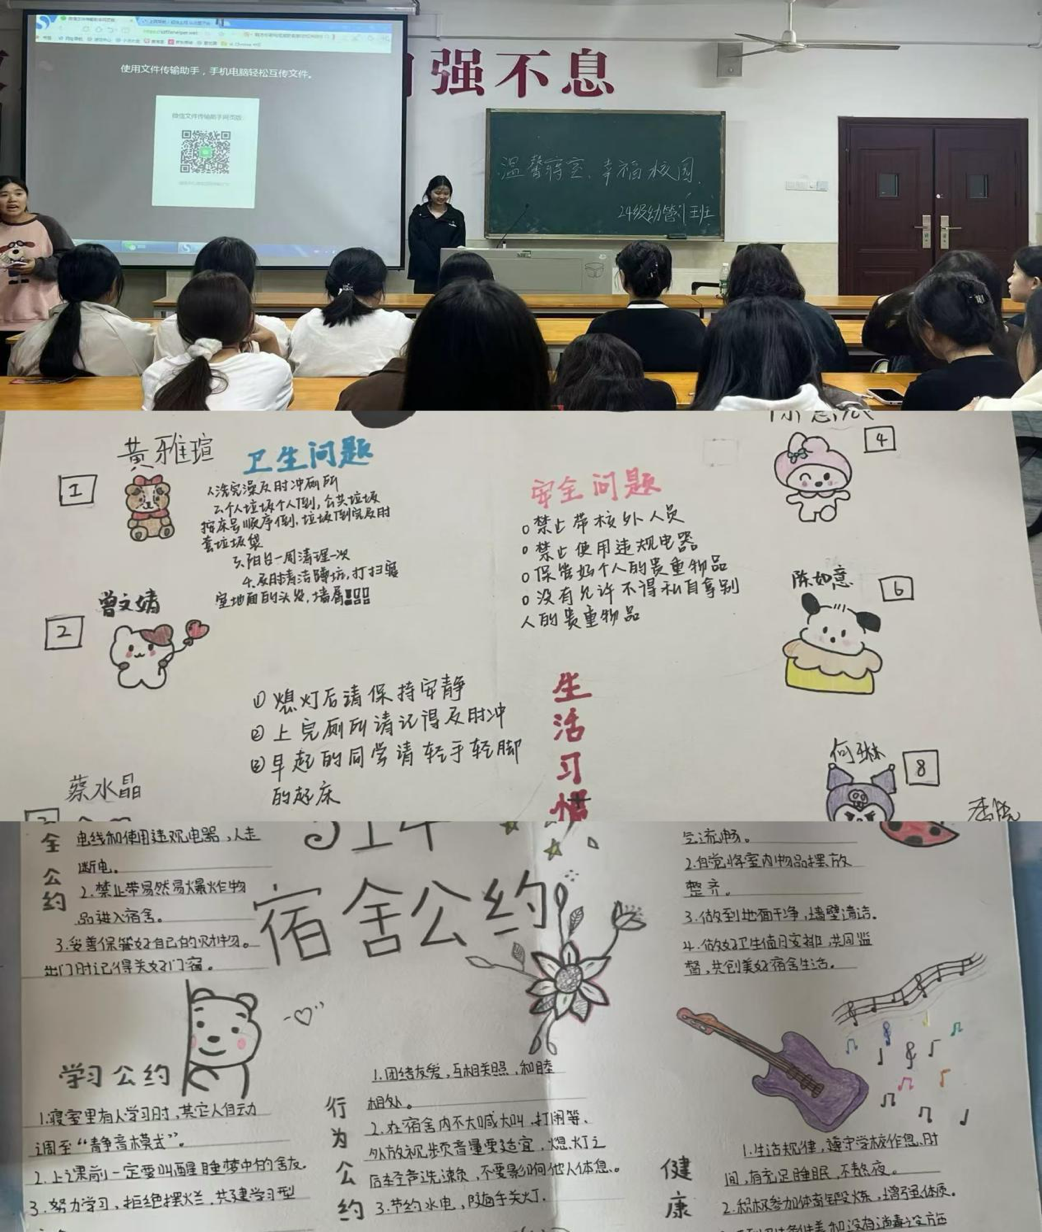 使用文件传输助手，手机电脑轻松互传文件。
微信文件传输助手网页版
自强不息
温馨寝室、幸福校园、
24级幼管1王班
黄雅瑄
1
卫生问题
1.洗完澡及时冲厕所
2.个人垃圾个人倒，公共垃圾
按床号顺序倒，垃圾倒完及时
套垃圾袋
3.阳台一周清理一次
室地面的头发，墙屑!!!
安全问题
○禁止带校外人员
○禁止使用违规电器
○保管好个人的贵重物品
○没有允许不得私自拿别
人的贵重物品
4
曾文婧
2
陈如意
6
①熄灯后请保持安静
②上完厕所请记得及时冲
③早起的同学请轻手轻脚
的起床
生活习惯
何琳
8
蔡水晶
全公约
电线和使用违规电器，人走
断电。
2.禁止带易燃易爆炸物
品进入宿舍。
3.妥善保管好自己的财物。
出门时记得关好门窗。
宿舍公约
气流畅。
2.自觉将室内物品摆放
整齐。
3.做到地面干净，墙壁清洁。
4.做好卫生值日安排,共同监
督,共创美好宿舍生活。
学习公约
1.寝室里有人学习时，其它人自动
调至“静音模式”。
2.上课前一定要叫醒睡梦中的舍友。
3.努力学习，拒绝摆烂，共建学习型
行为公约
1.团结友爱，互相关照，和睦
相处。
2.在宿舍内不大喊大叫，打闹等、
外放视频音量要适宜，熄灯之
后轻声洗漱，不要影响他人休息。
3.节约水电，随手关灯.
健康
1.生活规律，遵守学校作息时
间，有充足睡眠，不熬夜。
2.积极参加体育锻炼，增强体质。